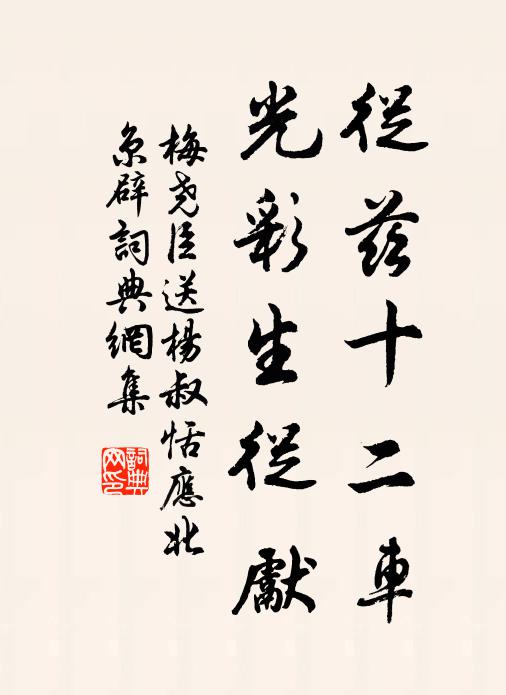 從茲十二車
光彩生從獻
梅尭臣送楊叔恬應北
京辟詞典網集
詞典
网印